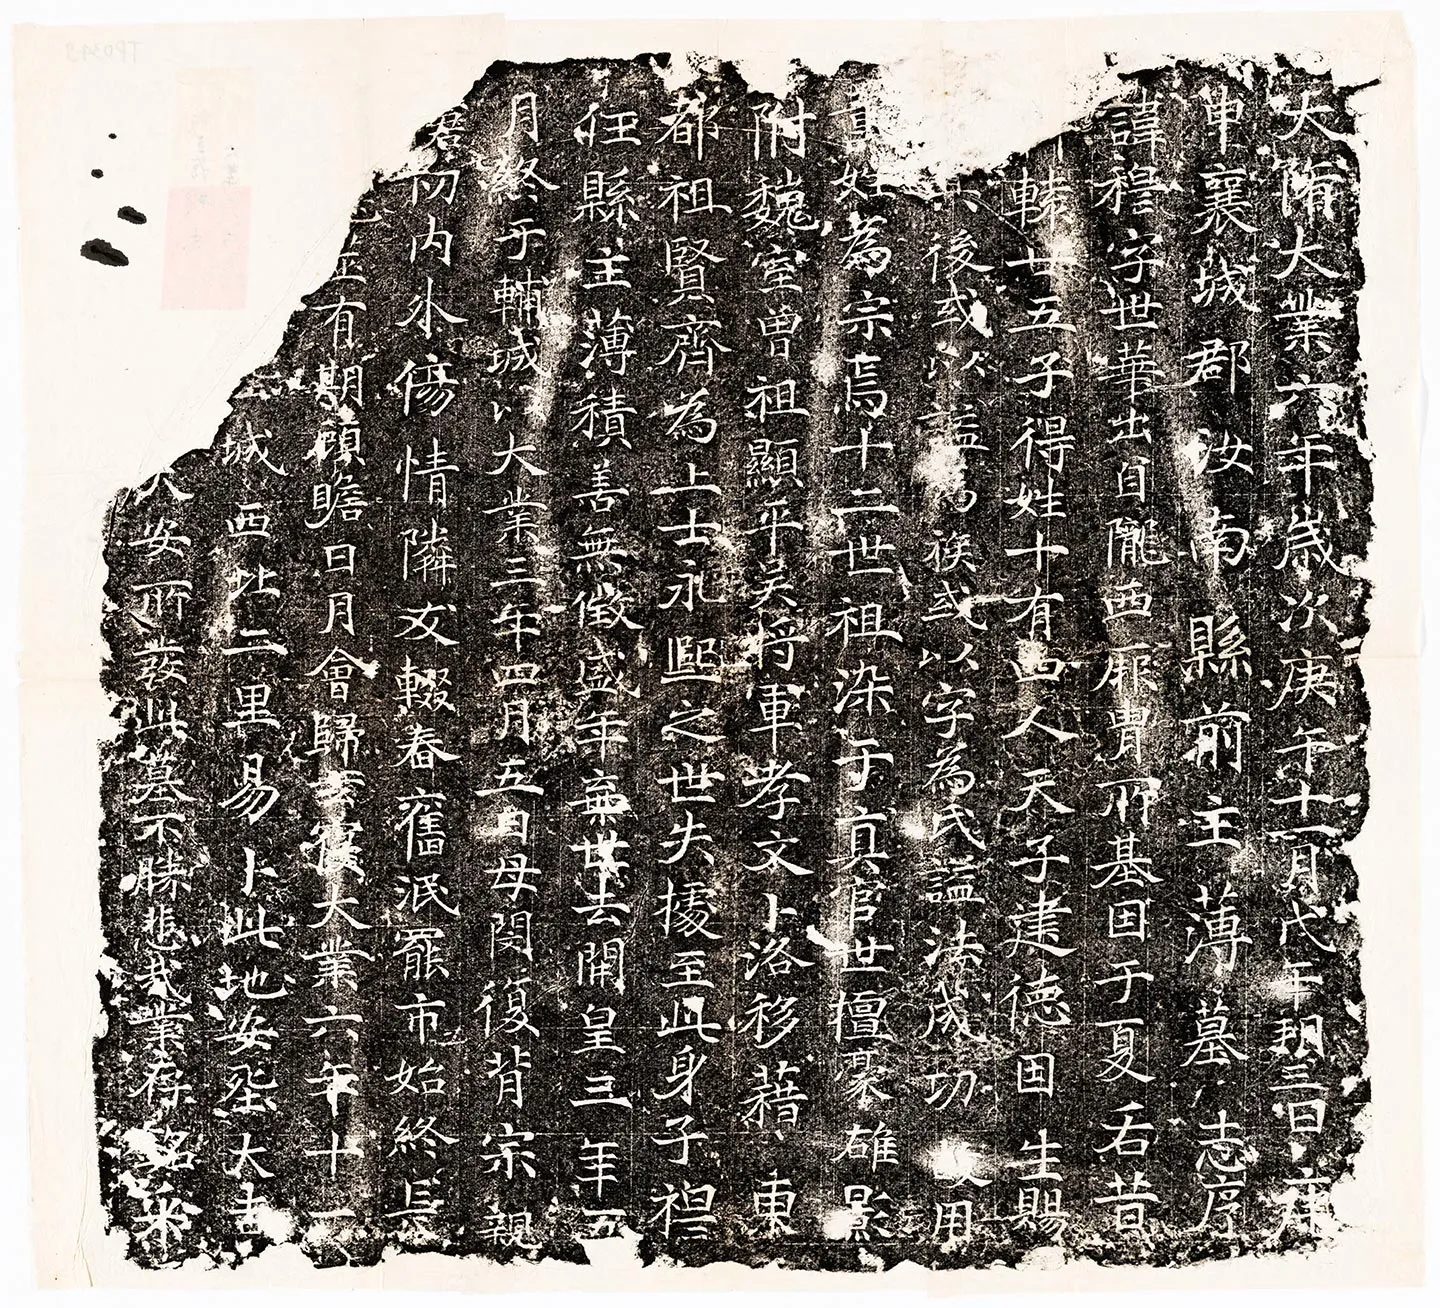 大隋大業六年歲次庚午十一月戊午朔三日庚
申襄城郡汝南縣前主薄墓志序
諱穆字世華出自隴西厥胄所基因于夏后昔
轅廿五子得姓十有四人天子建德因生賜
後或以謚為族或以字為氏謚法成功用
姓為宗焉十二世祖染于真官世襢豪雄影
附魏室曾祖顯平吳將軍孝文卜洛移藉東
都祖賢齊為上士永熙之世失據至此身子祖
任縣主薄積善無徵盛年棄世去開皇三年五
月終于輔城以大業三年四月五日母閔復背宗親
君內外傷情隣友輟春舊泯罷市始終長
有期顧瞻日月會歸大業六年十一
城西北二里易卜此地安厝大吉
安所發此墓不勝悲哉業存銘